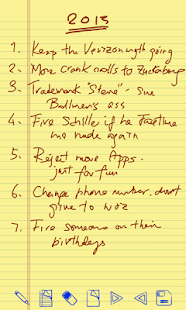 2013
1. Keep the Verizon myth going
2. More crank calls to Zuckerberg
3. Trademark "Steve" - sue
Ballmer's ass
4. Fire Schiller if he FaceTime
me nude again
5. Reject more Apps.
just for fun
6. Change phone number. don't
give to Woz
7. Fire someone on their
birthdays